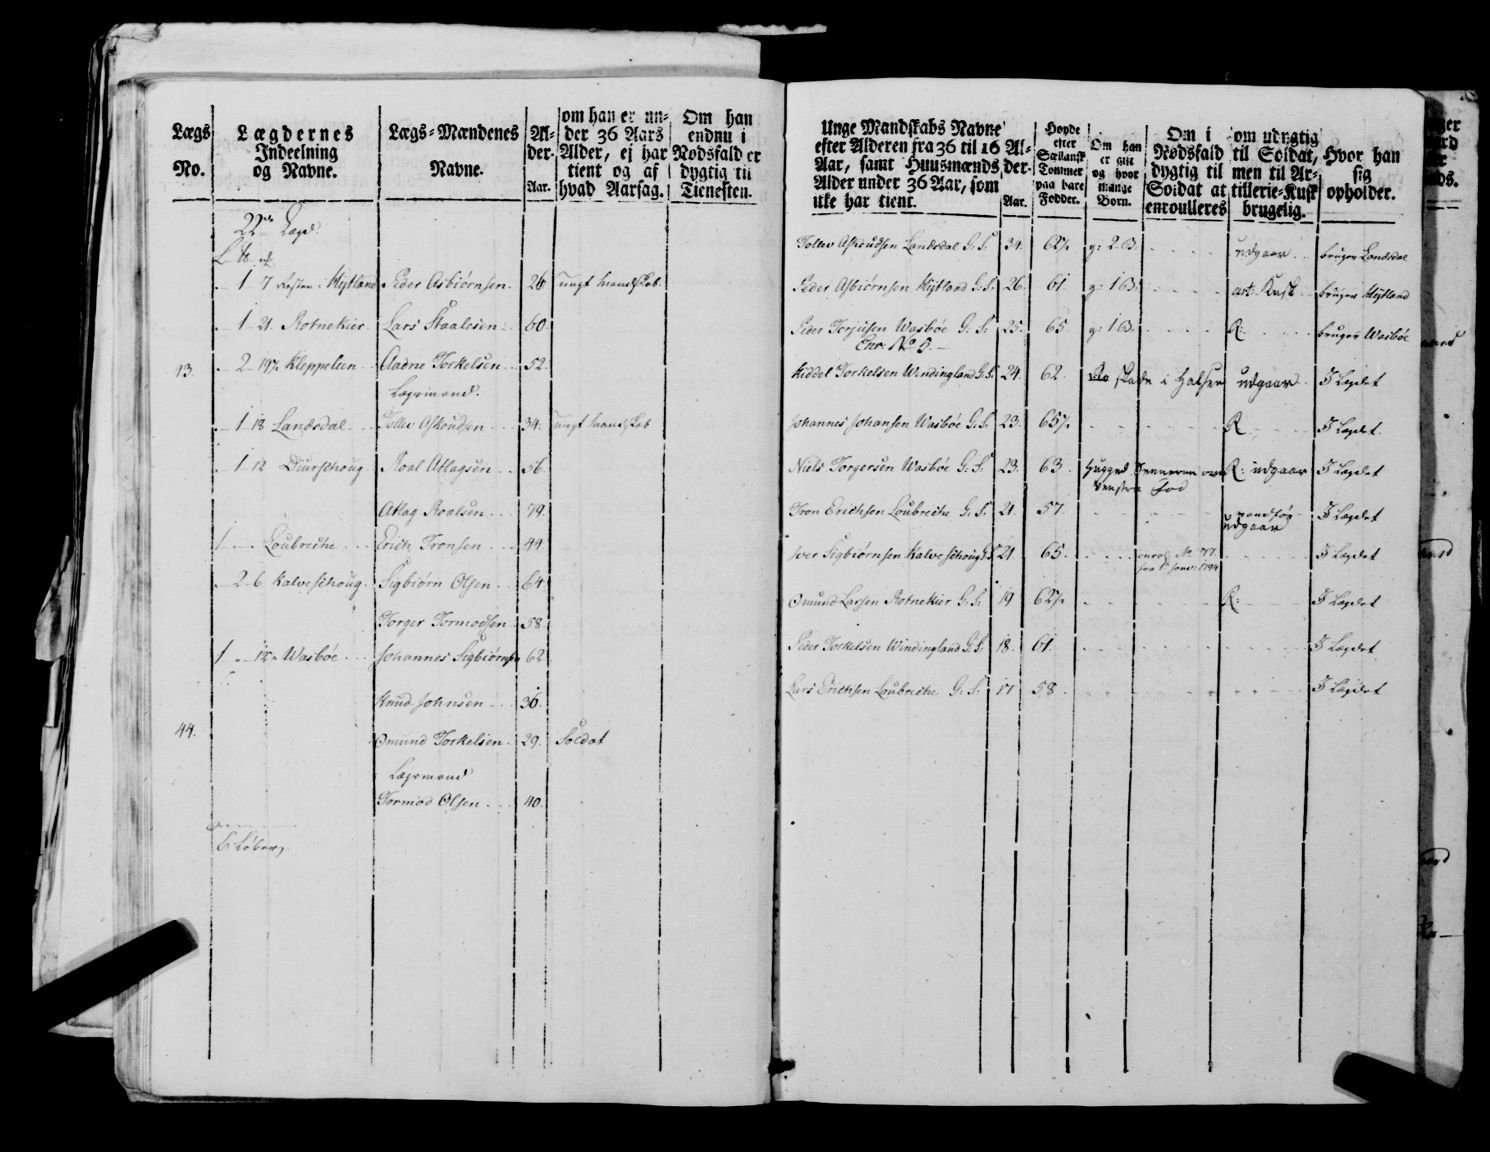 Lægs No.
Lægdernes Indeelning og Navne.
Lægs-Mændenes Navne.
Al-der. Aar.
om han er un-der 36 Aars Alder, ej har tient og af hvad Aarsag.
Om han endnu i Nødsfald er dygtig til Tienesten.
22de Lægd.
1 7 Resten Højtland Peder Asbiørnsen 26 ungt mandskab
1 21 Rotnekier Lars Staalesen 60.
43. 2 Kleppeleen Aadne Torkelsen 52.
Lægsmand.
1 18 Landsdal Tollev Askoudsen 34. ungt mandskab
1 12 Diurschoug Roal Atlagsen 56.
Atlag Roalsen 79.
1 Loubreche Erich Tronsen 44
2 6 Kalveschoug Sigbiørn Olsen 64
Torger Tormodsen 58
1 Wasbøe Johannes Sigbiørnsen 62
Knud Johnsen 36.
44. Omund Torkelsen 29. Soldat
Lægsmand
Tormod Olsen 40.
6 Løber
Unge Mandskabs Navne efter Alderen fra 36 til 16 Aar, samt Huusmænds Alder under 36 Aar, som ikke har tient.
Al-der. Aar.
Høyde efter Siællansk Tommer paa bare Fødder.
Om han er gift og hvor mange Børn.
Om i Nødsfald dygtig til Soldat at enroulleres
om udygtig til Soldat, men til Ar-tillerie-Kusk brugelig.
Hvor han sig opholder.
Tollev Askoudsen Landsdal G. S. 34. 62½ g: 2 B. udgaar bruger Landsdal
Peder Asbiørnsen Højtland G: S. 26. 61 g: 1 B. art: Kusk bruger Høytland
Peder Terjusen Wasbøe G: S. 25. 65 g: 1 B. R: bruger Wasbøe
Enr: No 5.
Kiddel Torkelsen Windingland G: S. 24. 62. skade i Halsen udgaar I Lægdet
Johannes Johansen Wasbøe G: S. 23. 65½ R I Lægdet
Niels Torgersen Wasbøe G: S. 23. 63. hugged Senneren over R: udgaar I Lægdet
venstre Fod
Tron Erichsen Loubreche G: S. 21. 57. udgaar I Lægdet
Iver Sigbiørnsen Kalveschoug G: S 21 65. enrol: No 77. I Lægdet
fra 1. Janv: 1794
Omund Larsen Rotnekier G: S: 19 62½ R: I Lægdet
Peder Torkelsen Windingland G: S. 18. 61. I Lægdet
Lars Erichsen Loubreche G: S. 17 58. I Lægdet